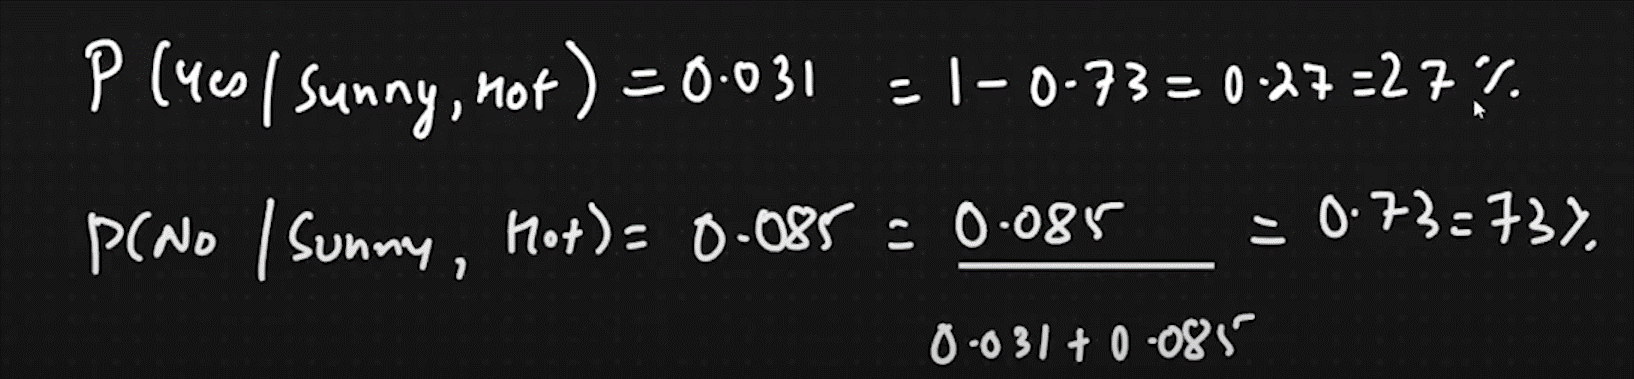 P (Yes / Sunny, Hot) = 0.031 = 1 - 0.73 = 0.27 = 27 %.
P(No / Sunny, Hot) = 0.085 = 0.085 = 0.73 = 73%.
0.031 + 0.085